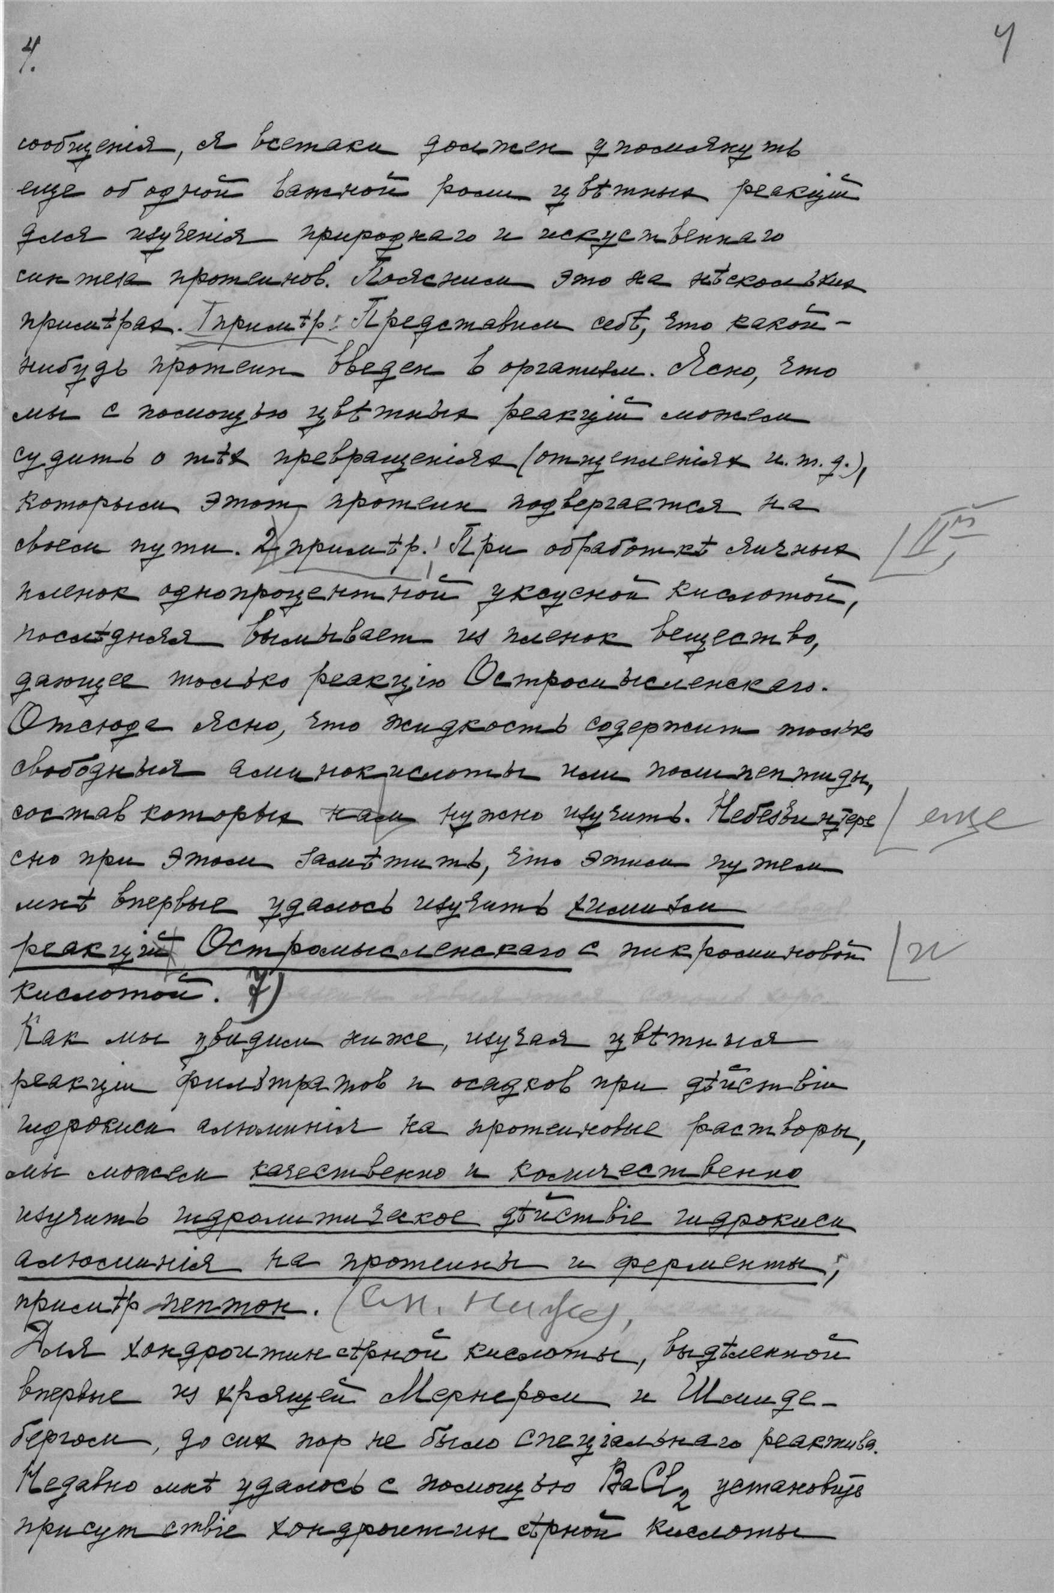 4.
4
сообщенія, я всетаки должен упомянуть
еще об одной важной роли цвѣтных реакцій
для изученія природнаго и искуственнаго
синтеза протеинов. Поясним это на нѣскольких
примѣрах. 1 примѣр: Представим себѣ, что какой-
нибудь протеин введен в организм. Ясно, что
мы с помощью цвѣтных реакцій можем
судить о тѣх превращеніях (отщепленіях и.т.д.),
которым этот протеин подвергается на
своем пути. 2) примѣр: При обработкѣ яичных
пленок однопроцентной уксусной кислотой,
послѣдняя вымывает из пленок вещество,
дающее только реакцію Остромысленскаго.
Отсюда ясно, что жидкость содержит только
свободныя аминокислоты или полипептиды,
состав которых нам нужно изучить. Небезъинтере
еще
сно при этом замѣтить, что этим путем
мнѣ впервые удалось изучить химизм
реакцій Остромысленскаго с пикраминовой
и
кислотой. 7)
Как мы увидим ниже, изучая цвѣтныя
реакціи фильтратов и осадков при дѣйствіи
гидрокиси алюминія на протеиновые растворы,
мы можем качественно и количественно
изучить гидролитическое дѣйствіе гидрокиси
алюминія на протеины и ферменты;
примѣр пептон. (См. ниже),
Для хондроитинсѣрной кислоты, выдѣленной
впервые из хрящей Мернером и Шмиде-
бергом, до сих пор не было спеціальнаго реактива.
Недавно мнѣ удалось с помощью BaCl2 установить
присутствіе хондроитинсѣрной кислоты